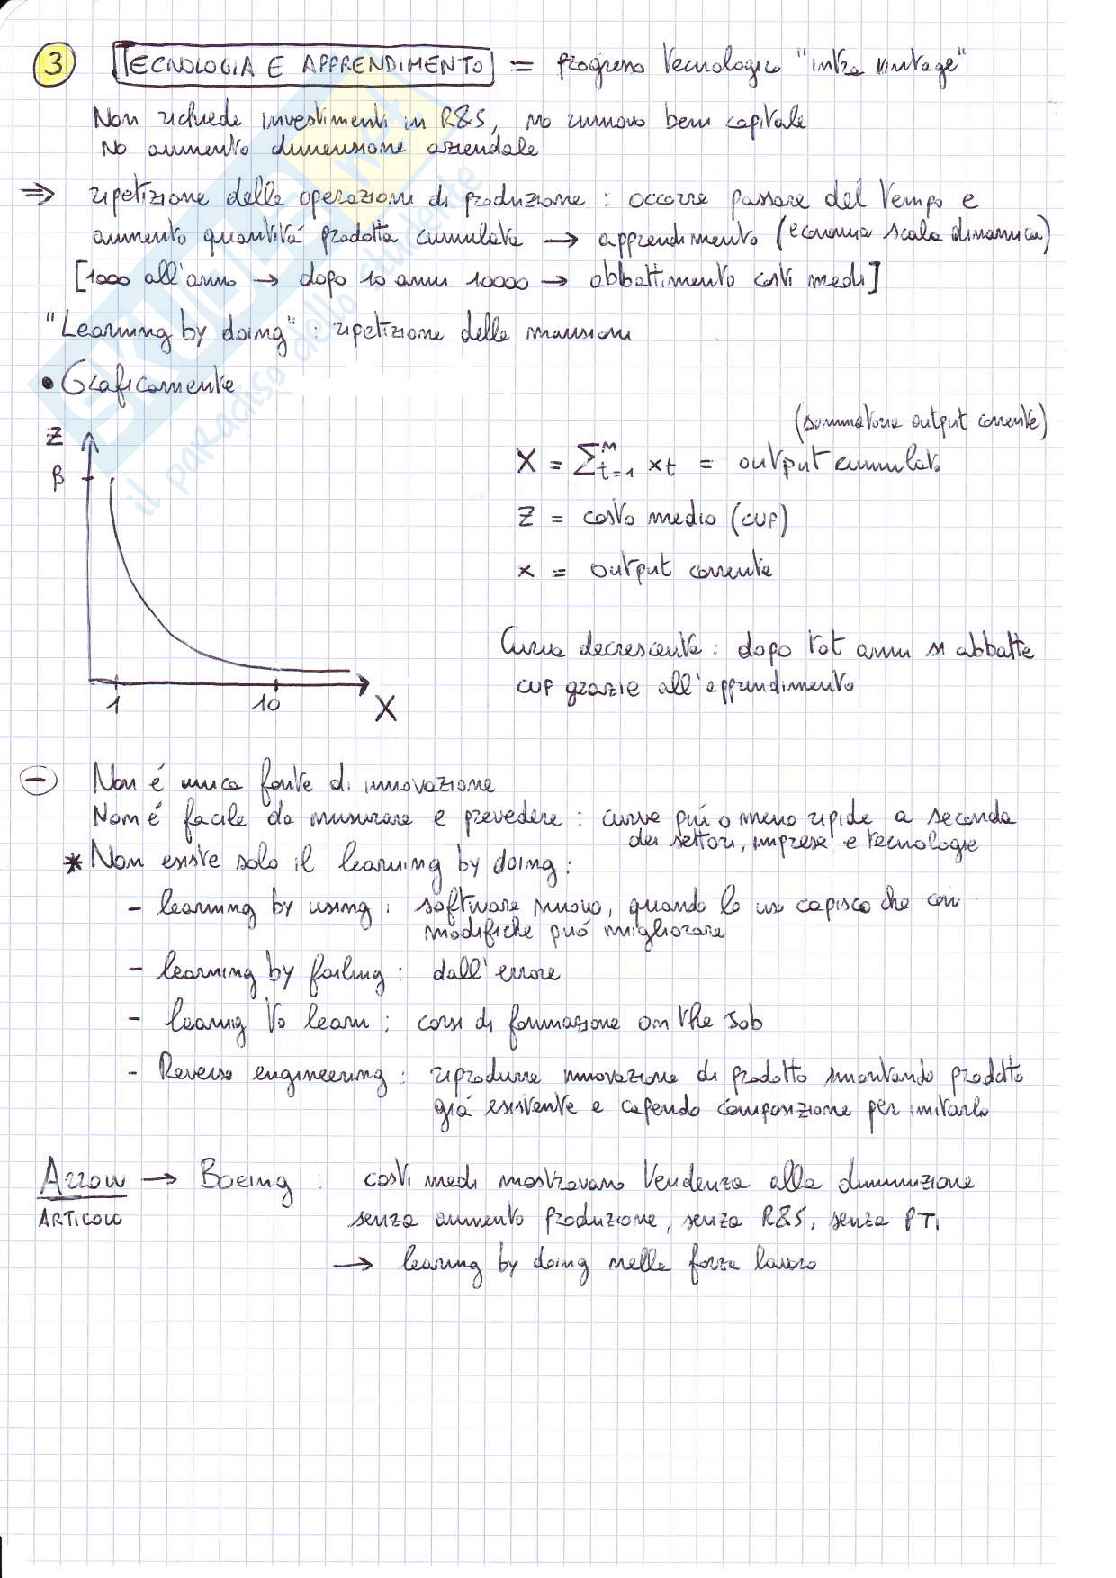 3 TECNOLOGIA E APPRENDIMENTO = progresso tecnologico "intra vintage"
Non richiede investimenti in R&S, no rinnovo beni capitale
No aumento dimensione aziendale
⇒ ripetizione delle operazioni di produzione : occorre passare del tempo e
aumento quantità prodotta cumulata → apprendimento (economia scala dinamica)
[1000 all'anno → dopo 10 anni 10000 → abbattimento costi medi]
"Learning by doing" : ripetizione delle mansioni
• Graficamente
Z
β
1 10 X
(sommatoria output corrente)
X = Σᵗ₌₁ⁿ xt = output cumulato
Z = costo medio (CUP)
x = output corrente
Curva decrescente : dopo tot anni si abbatte
CUP grazie all'apprendimento
− Non é unica fonte di innovazione
Non é facile da misurare e prevedere : curve piú o meno ripide a seconda
dei settori, imprese e tecnologie
* Non esiste solo il learning by doing :
- learning by using : software nuovo, quando lo uso capisco che con
modifiche puó migliorare
- learning by failing : dall'errore
- learnig to learn : corsi di formazione on the job
- Reverse engineering : riprodurre innovazione di prodotto smontando prodotto
giá esistente e capendo composizione per imitarlo
Arrow → Boeing : costi medi mostravano tendenza alla diminuzione
ARTICOLO senza aumento produzione, senza R&S, senza PTI
→ learning by doing nella forza lavoro
SKUOLA.net
il paradiso dello studente